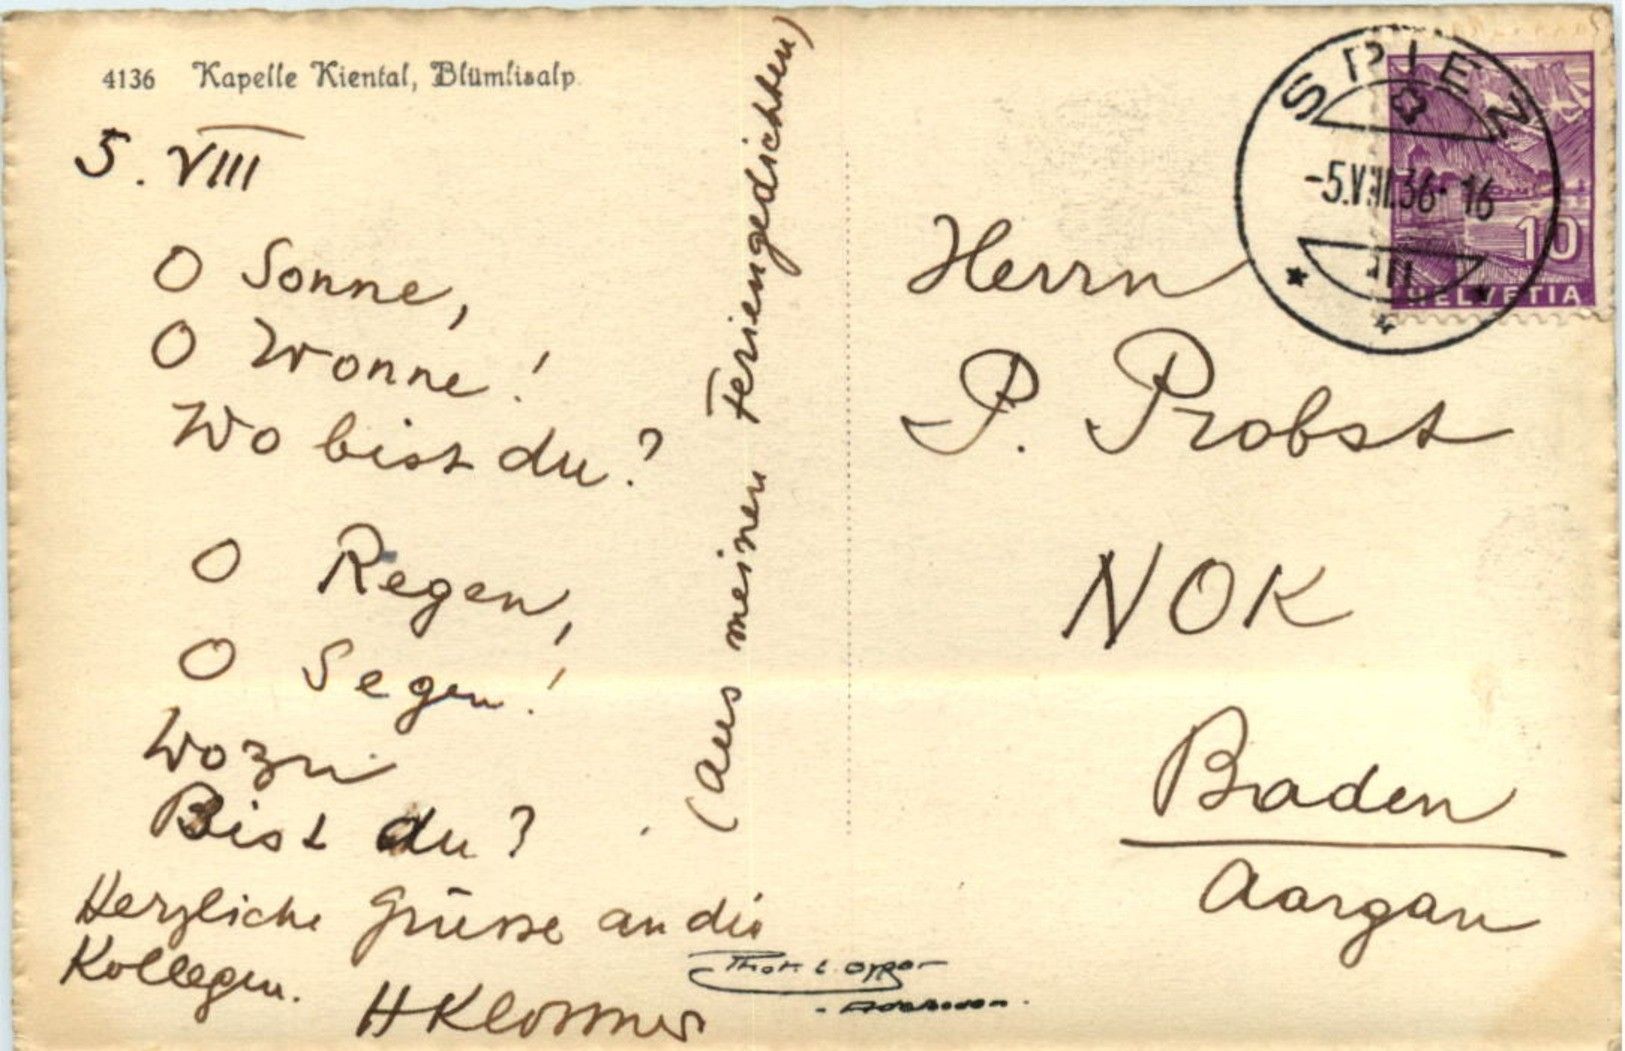 4136 Kapelle Kiental, Blümlisalp.
5. VIII
O Sonne,
O Wonne!
Wo bist du?
O Regen,
O Segen!
Wozu
Bist du?
Herzliche Grüsse an die
Kollegen.
(Aus meinen Feriengedichten)
SPIEZ
-5.VIII.36-16
III
10
HELVETIA
Herrn
P. Probst
NOK
Baden
Aargau
Phot.